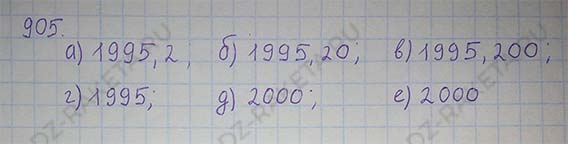 905.
а) 1995,2; б) 1995,20; в) 1995,200;
г) 1995; д) 2000; е) 2000
DZ-RAKETA.RU